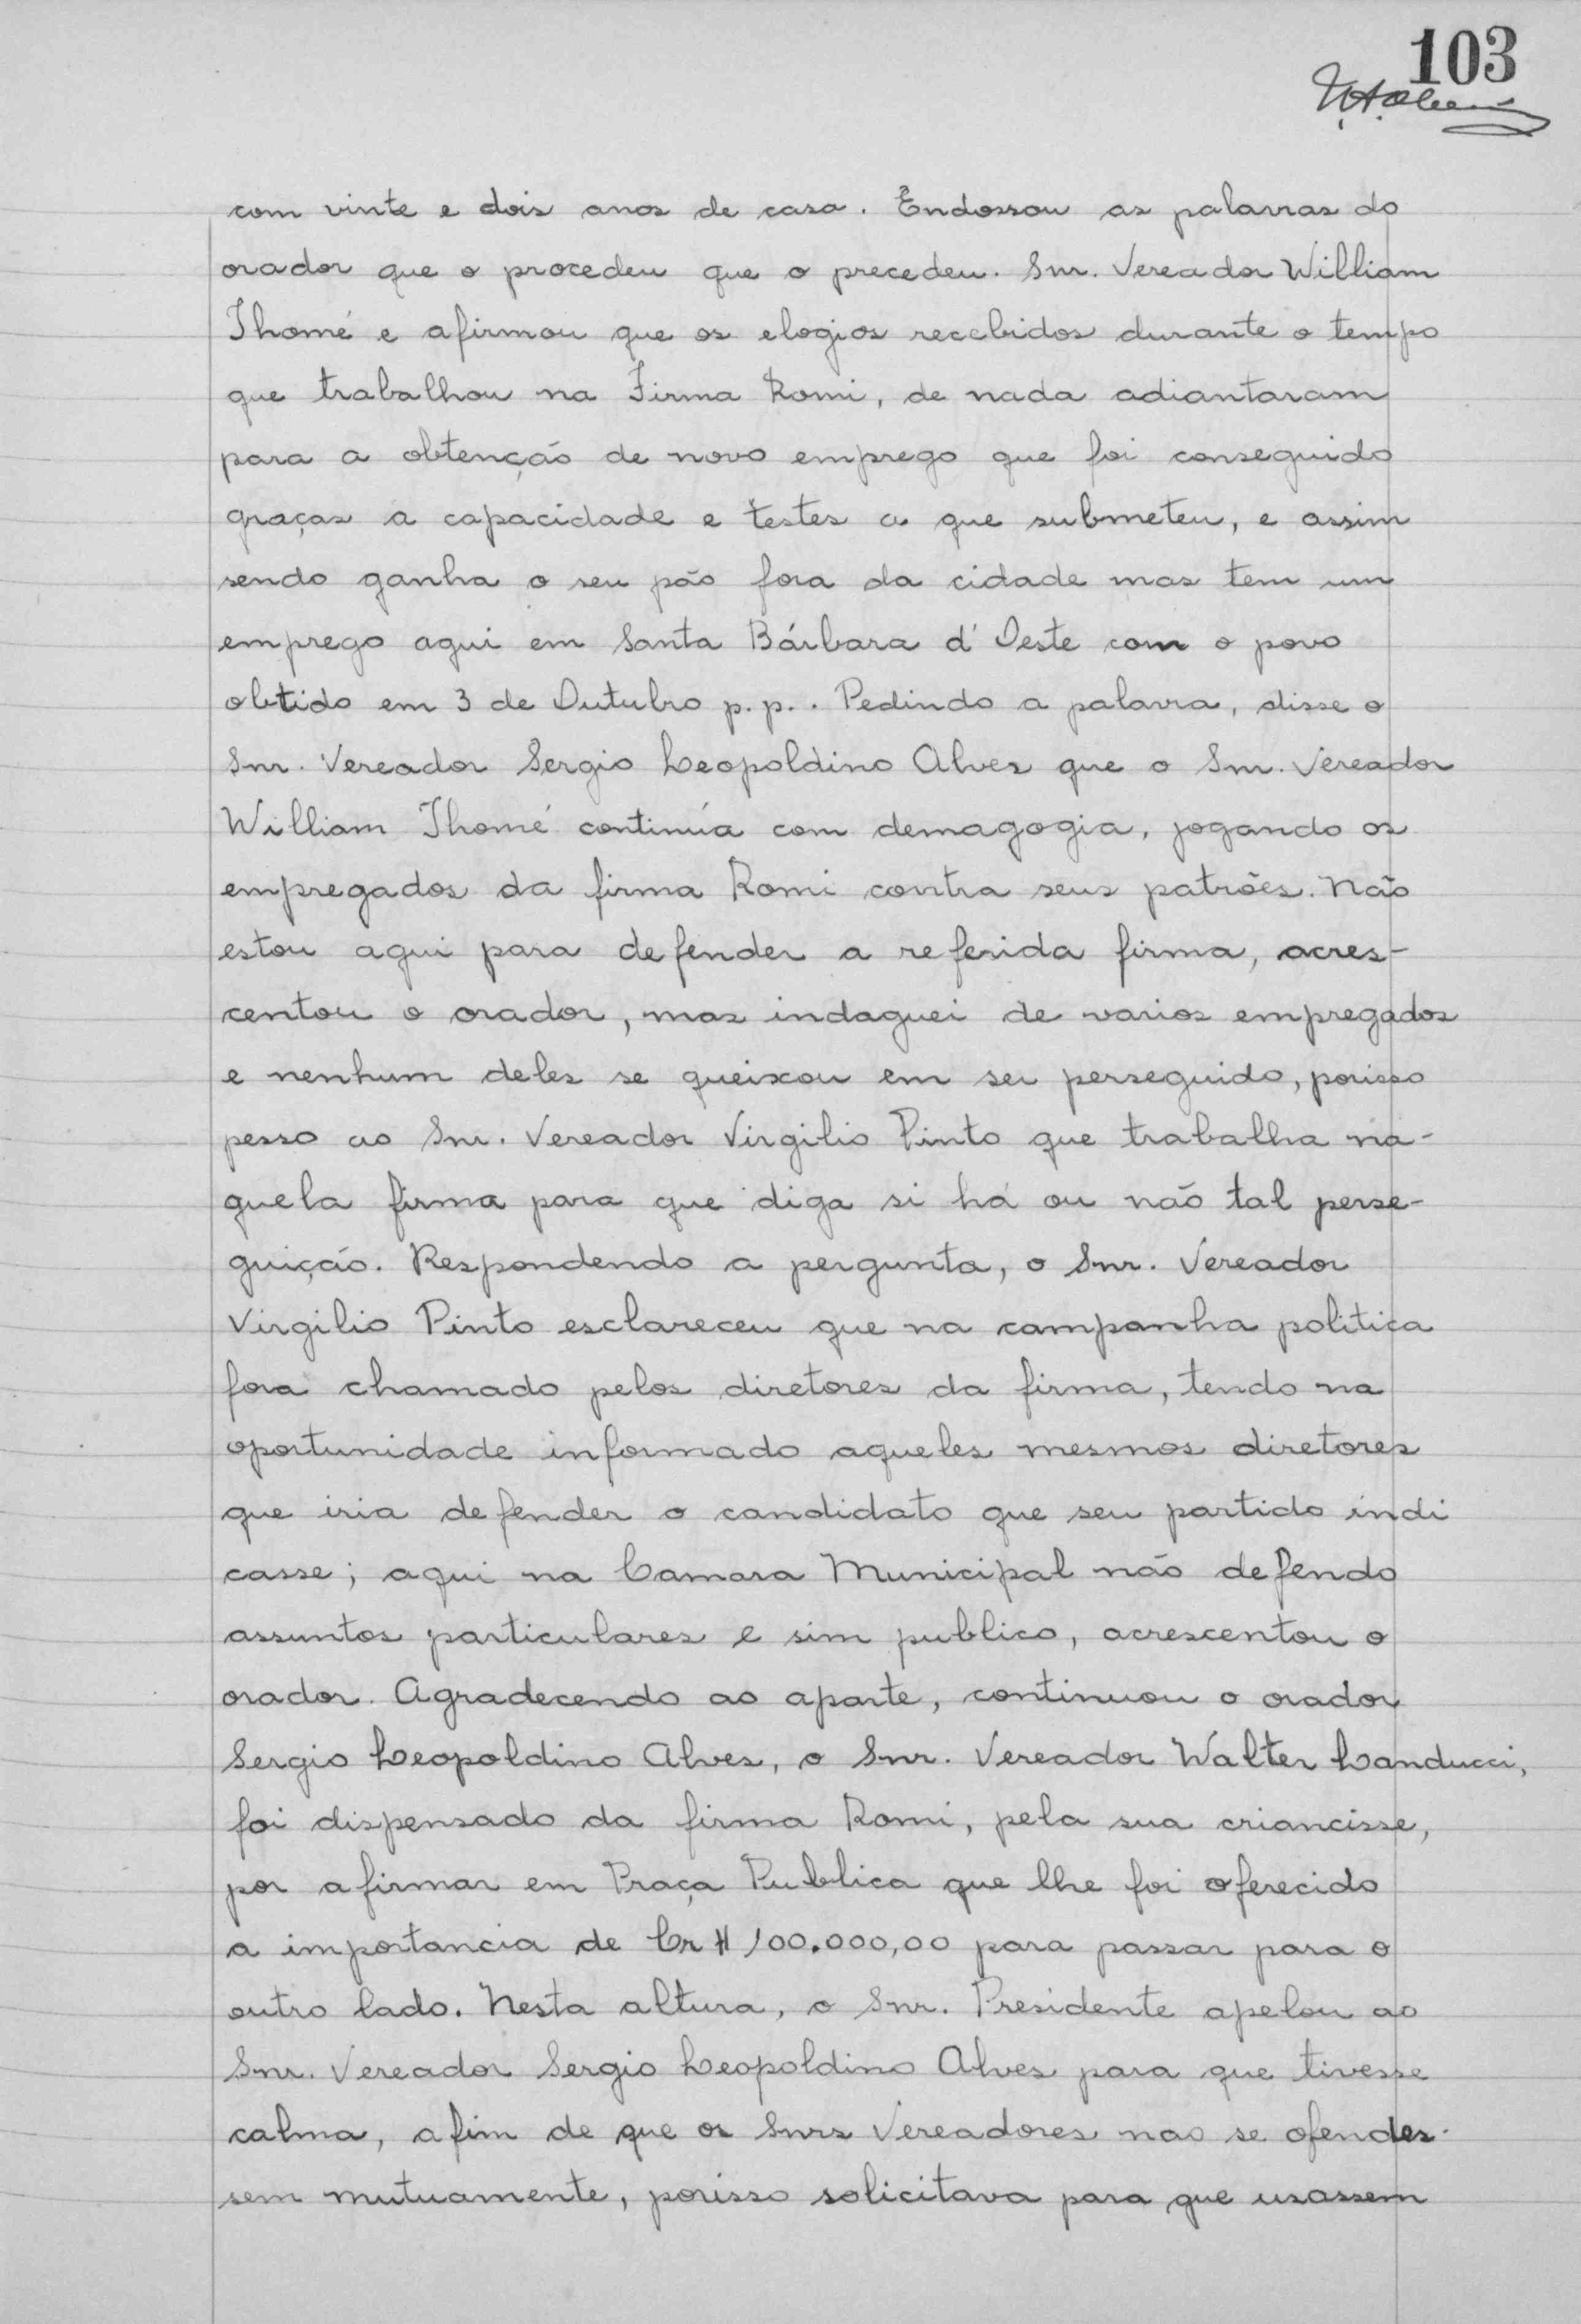 103
com vinte e dois anos de casa. Endossou as palavras do
orador que o procedeu que o precedeu. Snr. Vereador William
Thomé e afirmou que os elogios recebidos durante o tempo
que trabalhou na Firma Romi, de nada adiantaram
para a obtenção de novo emprego que foi conseguido
graças a capacidade e testes a que submeteu, e assim
sendo ganha o seu pão fora da cidade mas tem um
emprego aqui em Santa Bárbara d'Oeste com o povo
obtido em 3 de Outubro p.p.. Pedindo a palavra, disse o
Snr. Vereador Sergio Leopoldino Alves que o Snr. Vereador
William Thomé continúa com demagogia, jogando os
empregados da firma Romi contra seus patrões. Não
estou aqui para defender a referida firma, acres-
centou o orador, mas indaguei de varios empregados
e nenhum deles se queixou em ser perseguido, porisso
pesso ao Snr. Vereador Virgilio Pinto que trabalha na-
quela firma para que diga si há ou não tal perse-
guição. Respondendo a pergunta, o Snr. Vereador
Virgilio Pinto esclareceu que na campanha politica
fora chamado pelos diretores da firma, tendo na
oportunidade informado aqueles mesmos diretores
que iria defender o candidato que seu partido indi
casse; aqui na Camara Municipal não defendo
assuntos particulares e sim publico, acrescentou o
orador. Agradecendo ao aparte, continuou o orador
Sergio Leopoldino Alves, o Snr. Vereador Walter Landucci,
foi dispensado da firma Romi, pela sua criancisse,
por afirmar em Praça Publica que lhe foi oferecido
a importancia de Cr$ 100.000,00 para passar para o
outro lado. Nesta altura, o Snr. Presidente apelou ao
Snr. Vereador Sergio Leopoldino Alves para que tivesse
calma, afim de que os Snrs Vereadores nao se ofendes-
sem mutuamente, porisso solicitava para que usassem